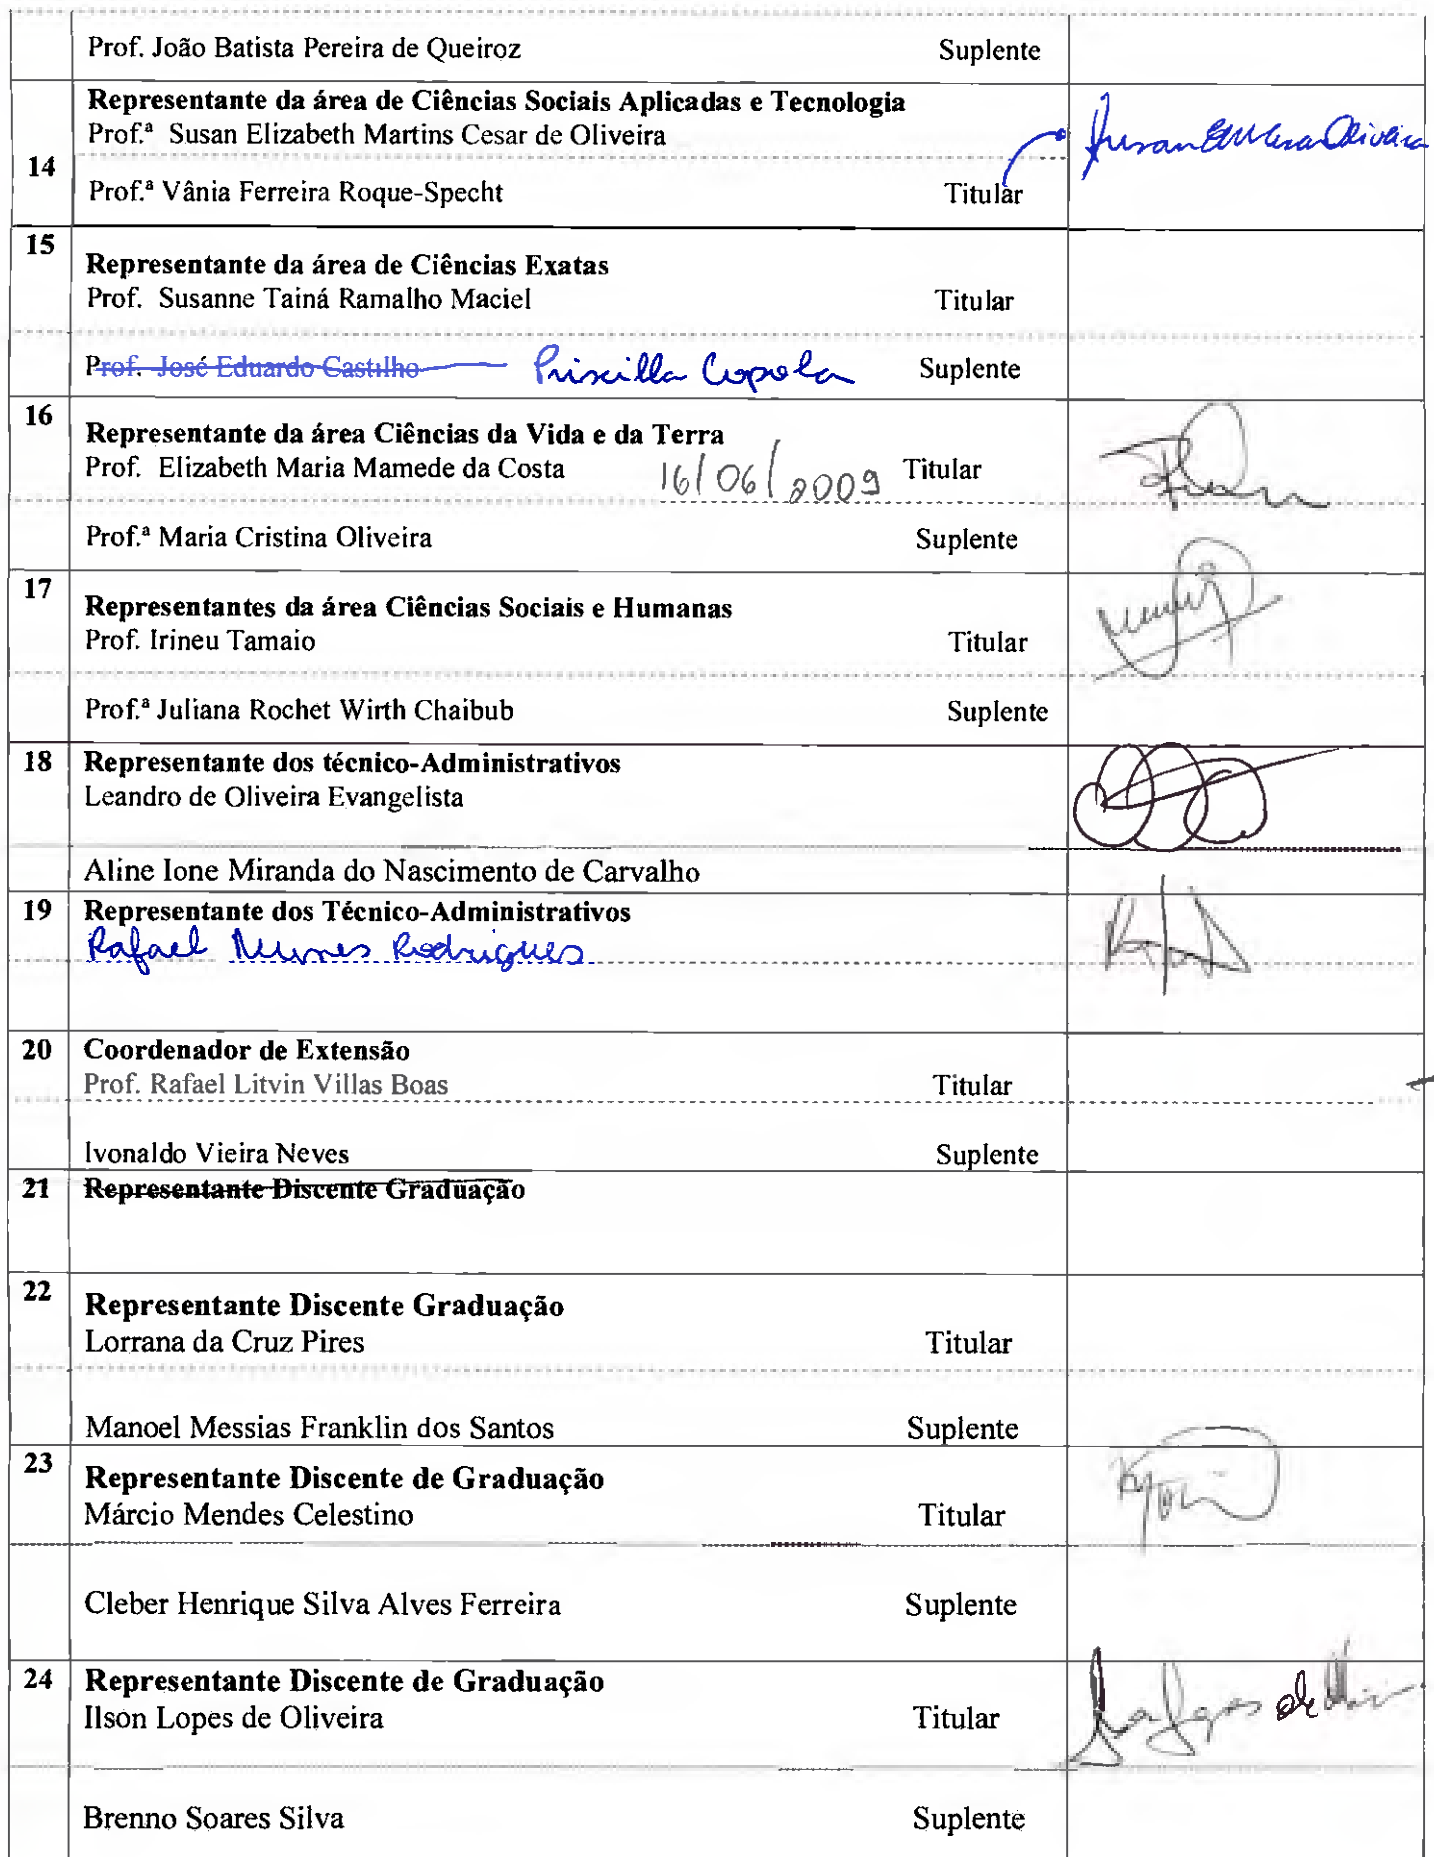 Prof. João Batista Pereira de Queiroz Suplente
14 Representante da área de Ciências Sociais Aplicadas e Tecnologia
Prof.ª Susan Elizabeth Martins Cesar de Oliveira
Prof.ª Vânia Ferreira Roque-Specht Titular
15 Representante da área de Ciências Exatas
Prof. Susanne Tainá Ramalho Maciel Titular
Prof. José Eduardo Castilho Priscilla Coprola Suplente
16 Representante da área Ciências da Vida e da Terra
Prof. Elizabeth Maria Mamede da Costa 16/06/2009 Titular
Prof.ª Maria Cristina Oliveira Suplente
17 Representantes da área Ciências Sociais e Humanas
Prof. Irineu Tamaio Titular
Prof.ª Juliana Rochet Wirth Chaibub Suplente
18 Representante dos técnico-Administrativos
Leandro de Oliveira Evangelista
Aline Ione Miranda do Nascimento de Carvalho
19 Representante dos Técnico-Administrativos
Rafael Nunes Rodrigues
20 Coordenador de Extensão
Prof. Rafael Litvin Villas Boas Titular
Ivonaldo Vieira Neves Suplente
21 Representante Discente Graduação
22 Representante Discente Graduação
Lorrana da Cruz Pires Titular
Manoel Messias Franklin dos Santos Suplente
23 Representante Discente de Graduação
Márcio Mendes Celestino Titular
Cleber Henrique Silva Alves Ferreira Suplente
24 Representante Discente de Graduação
Ilson Lopes de Oliveira Titular
Brenno Soares Silva Suplente